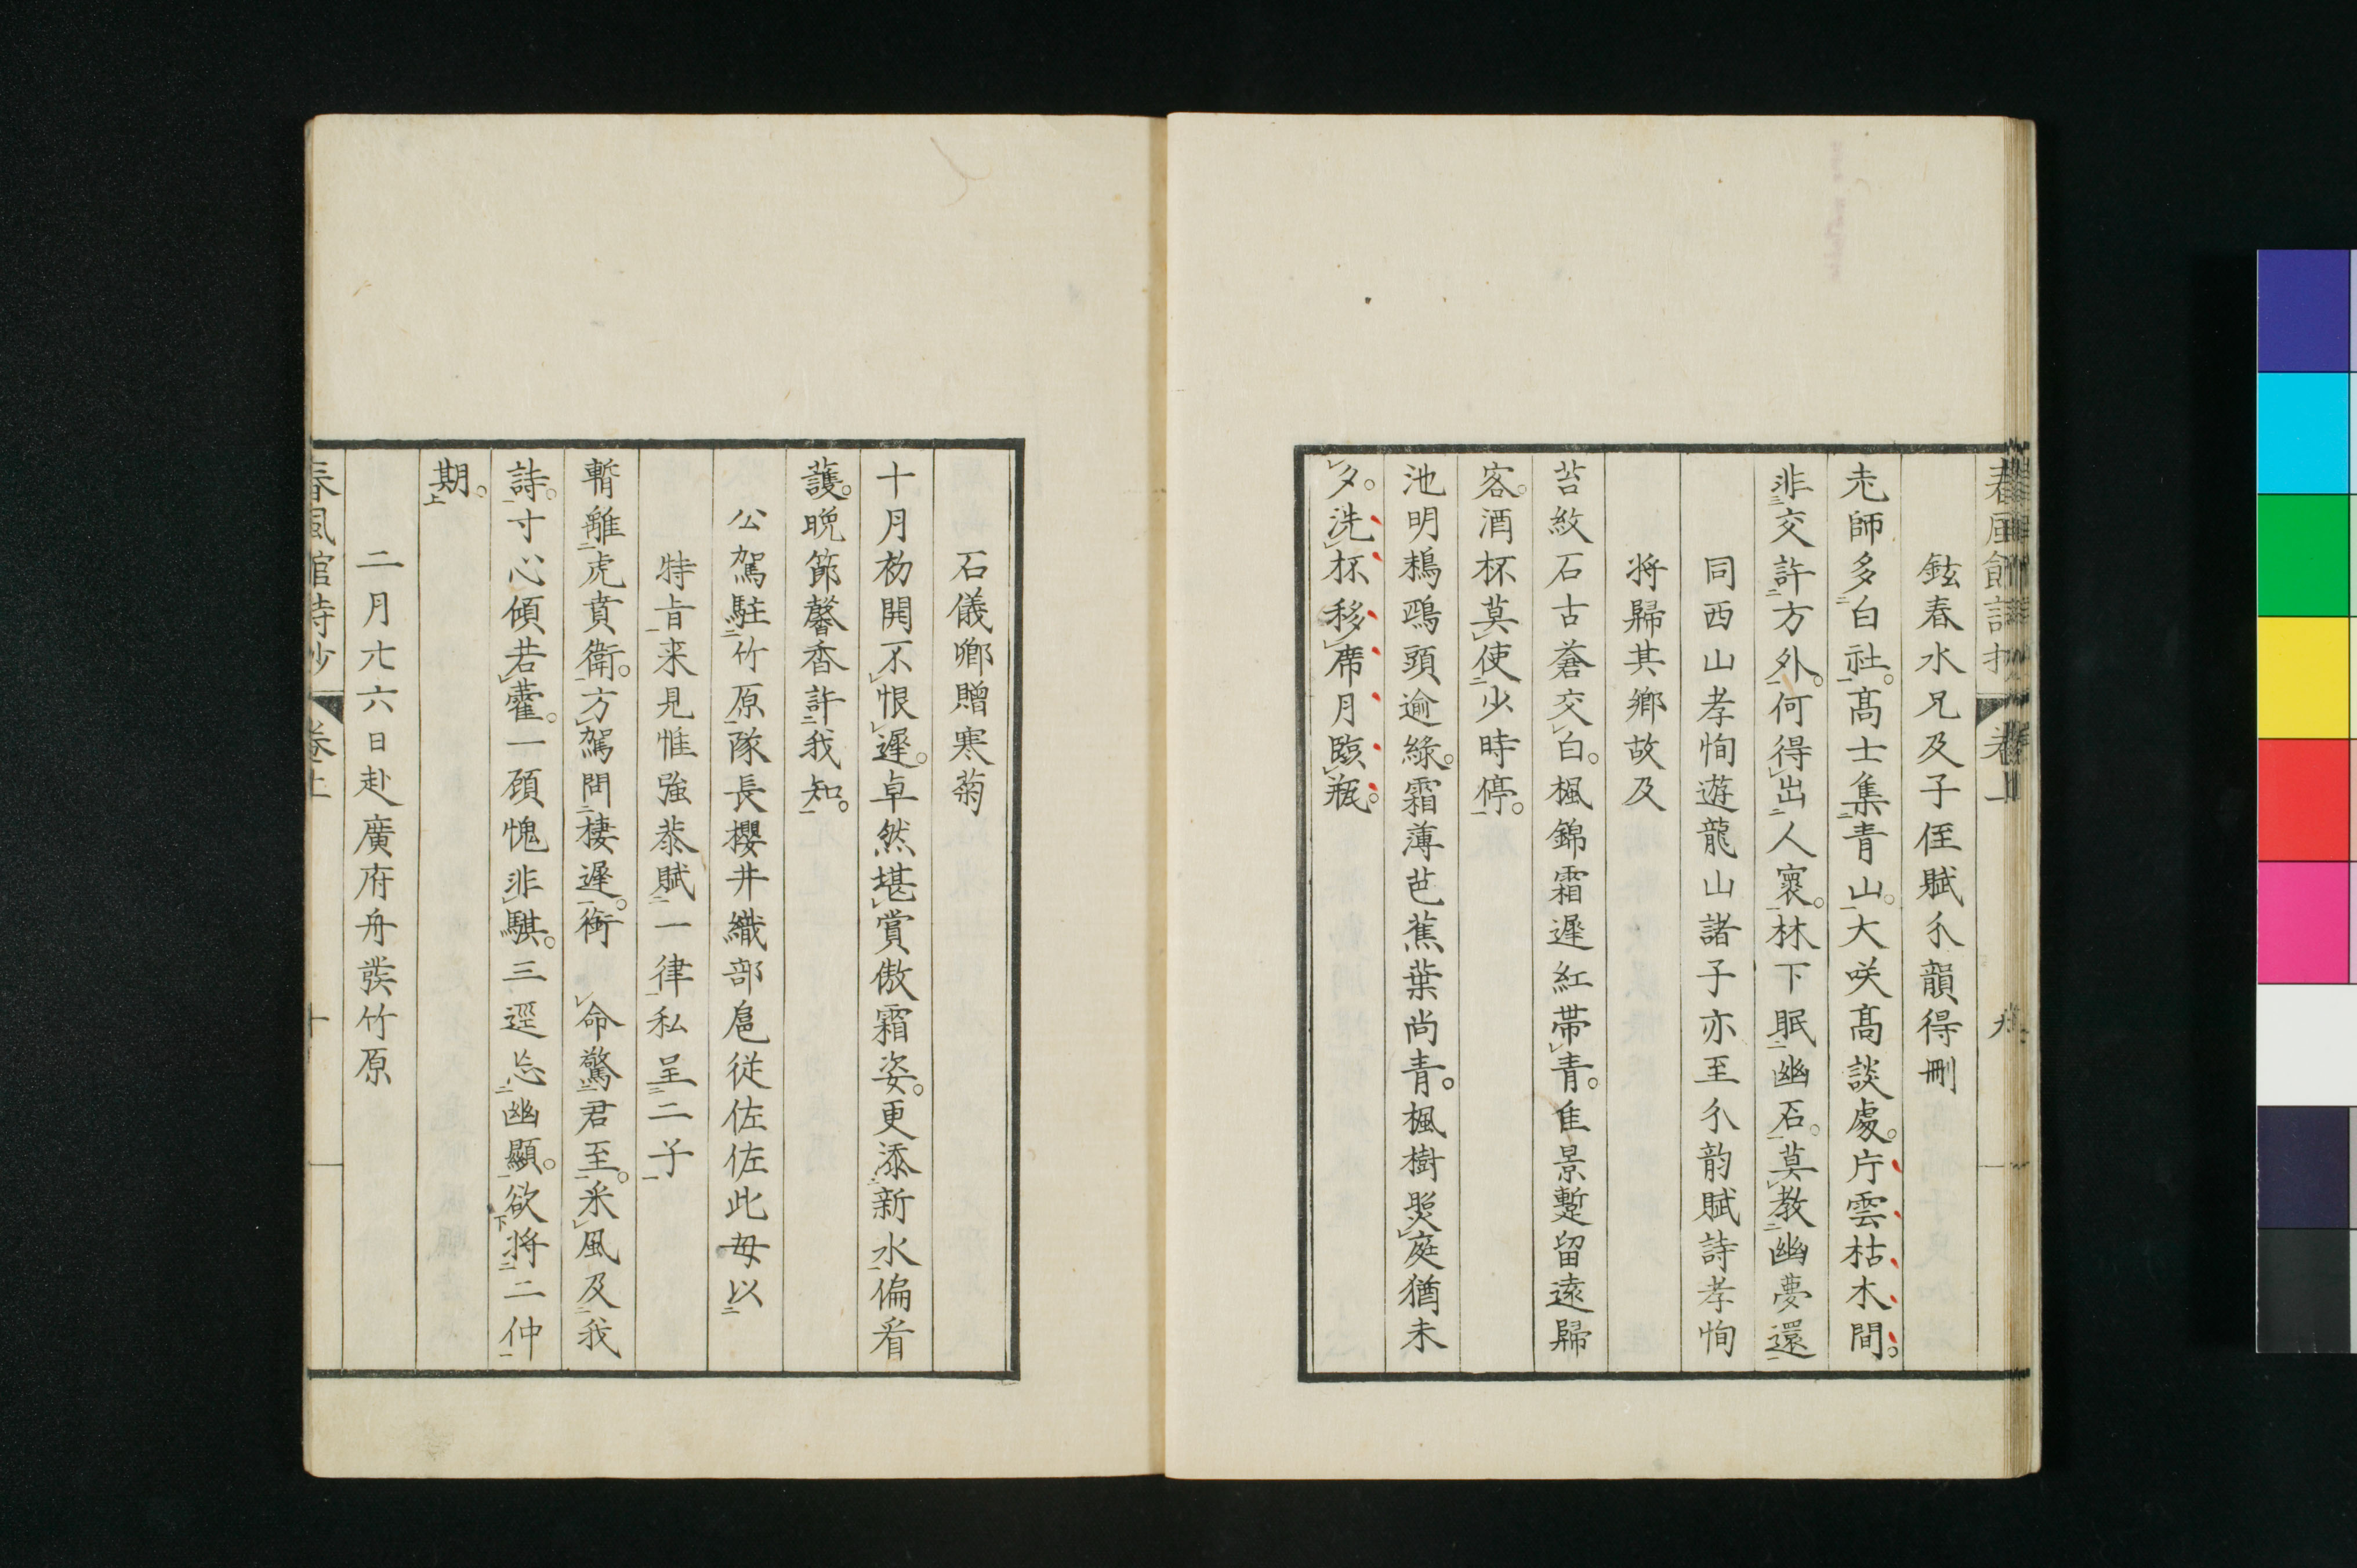 春風館詩抄 卷上 九
鉉春水兄及子侄賦分韻得刪
老師多白社。高士集青山。大咲高談處。片雲枯木間。
非交許方外。何得出人寰。林下眠幽石。莫教幽夢還
同西山孝恂遊龍山諸子亦至分韵賦詩孝恂
将歸其鄉故及
苔紋石古蒼交白。楓錦霜遲紅帶青。佳景蹔留遠歸
客。酒杯莫使少時停。
池明鵁鶄頭逾綠。霜薄芭蕉葉尚青。楓樹照庭猶未
夕。洗杯移席月臨瓶。
石儀卿贈寒菊
十月初開不恨遲。卓然堪賞傲霜姿。更添新水偏看
護。晚節馨香許我知。
公駕駐竹原隊長櫻井織部扈從佐佐此母以
特旨来見惟強恭賦一律私呈二子
暫離虎賁衛。方駕問棲遲。銜 命驚君至。采風及我
詩。寸心傾若藿。一顧愧非騏。三逕忘幽顯。欲将二仲
期。
二月廿六日赴廣府舟發竹原
春風館詩抄 卷上 十